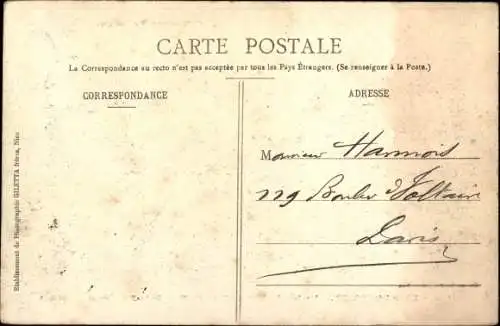 CARTE POSTALE
La Correspondance au recto n'est pas acceptée par tous les Pays Étrangers. (Se renseigner à la Poste.)
CORRESPONDANCE
ADRESSE
Monsieur Hannois
229 Boulev Voltaire
Paris
Etablissement de Photographie GILETTA frères, Nice